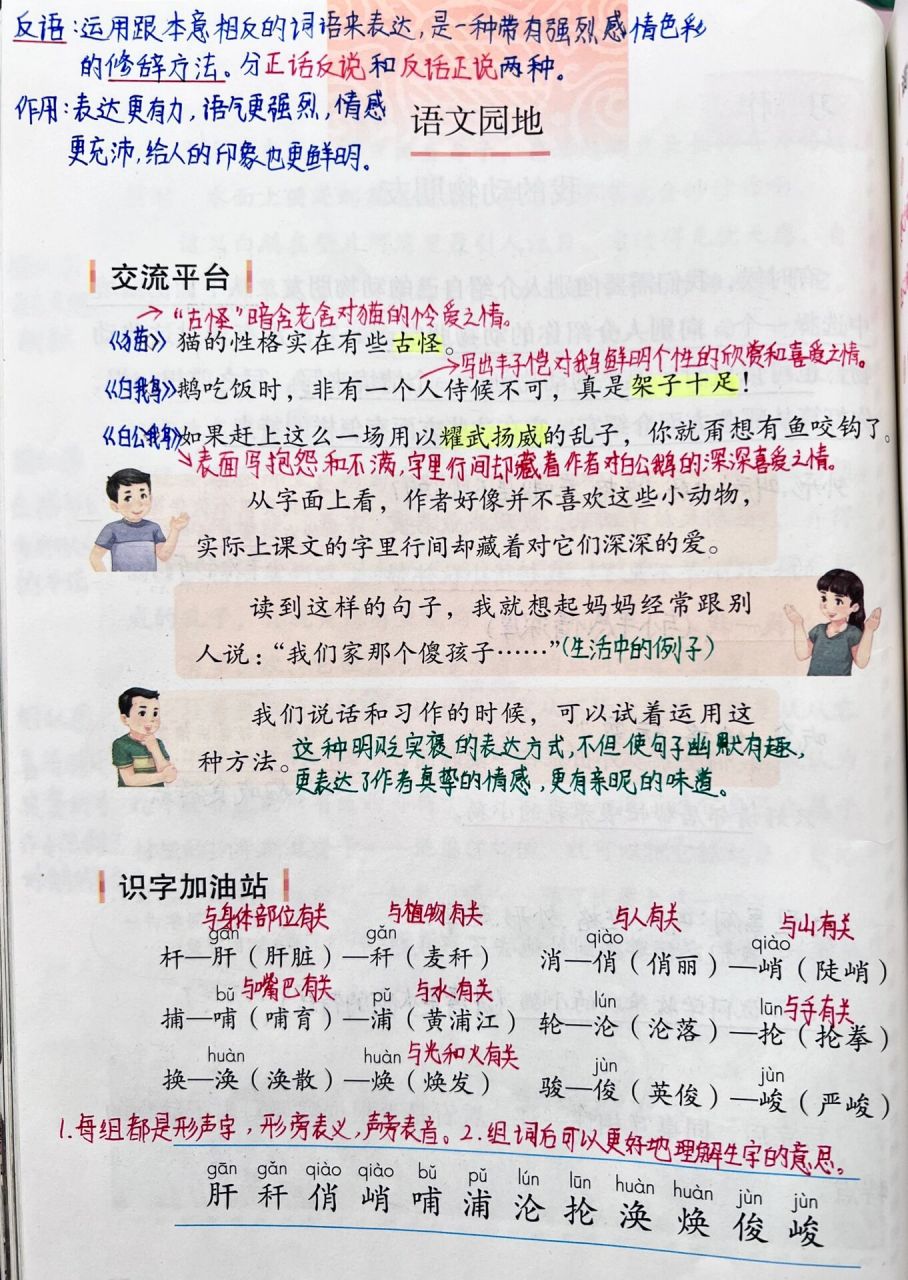 反语:运用跟本意相反的词语来表达,是一种带有强烈感情色彩
的修辞方法。分正话反说和反话正说两种。
作用:表达更有力,语气更强烈,情感
更充沛,给人的印象也更鲜明。
语文园地
交流平台
→“古怪”暗含老舍对猫的怜爱之情。
《猫》猫的性格实在有些古怪。
→写出丰子恺对我鹅鲜明个性的欣赏和喜爱之情。
《白鹅》鹅吃饭时，非有一个人侍候不可，真是架子十足！
《白公鹅》如果赶上这么一场用以耀武扬威的乱子，你就甭想有鱼咬钩了。
→表面写抱怨和不满,字里行间却藏着作者对白公鹅的深深喜爱之情。
从字面上看，作者好像并不喜欢这些小动物，
实际上课文的字里行间却藏着对它们深深的爱。
读到这样的句子，我就想起妈妈经常跟别
人说：“我们家那个傻孩子……”(生活中的例子)
我们说话和习作的时候，可以试着运用这
种方法。这种明贬实褒的表达方式,不但使句子幽默有趣,
更表达了作者真挚的情感,更有亲昵的味道。
识字加油站
与身体部位有关 与植物有关 与人有关 与山有关
gān gǎn qiào qiào
杆—肝（肝脏）—秆（麦秆） 消—俏（俏丽）—峭（陡峭）
与嘴巴有关 与水有关 与手有关
bǔ pǔ lún lūn
捕—哺（哺育）—浦（黄浦江） 轮—沦（沦落）—抡（抡拳）
与光和火有关
huàn huàn jùn jùn
换—涣（涣散）—焕（焕发） 骏—俊（英俊）—峻（严峻）
1.每组都是形声字,形旁表义,声旁表音。2.组词后可以更好地理解生字的意思。
gān gǎn qiào qiào bǔ pǔ lún lūn huàn huàn jùn jùn
肝 秆 俏 峭 哺 浦 沦 抡 涣 焕 俊 峻